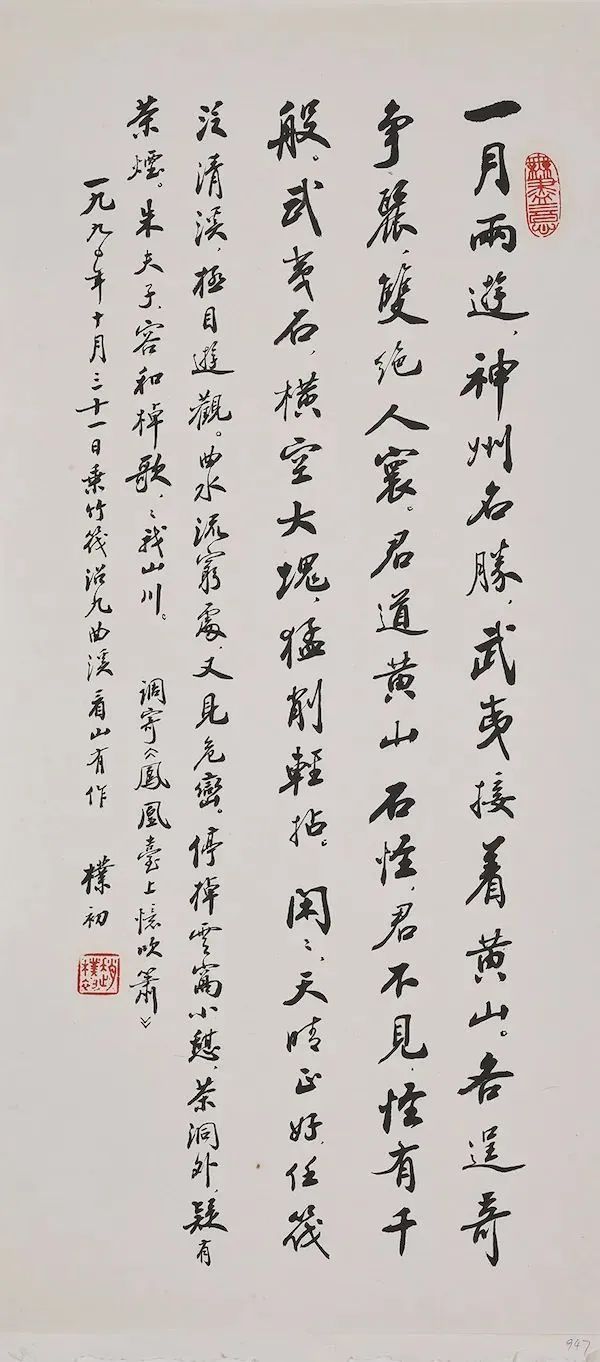 無盡意
一月兩遊,神州名勝,武夷接着黄山。各逞奇
争麗,雙绝人寰。君道黄山石怪,君不見,怪有千
般。武夷石,横空大塊,猛削輕拈。 閑〻,天晴正好,任筏
泛清溪,極目遊觀。曲水流窮處,又見危巒。停棹雲窩小憩,茶洞外,疑有
茶煙。朱夫子,容和棹歌,〻我山川。 調寄《鳳凰臺上憶吹簫》
一九九〇年十月三十一日乘竹筏沿九曲溪看山有作 樸初
趙樸初
947